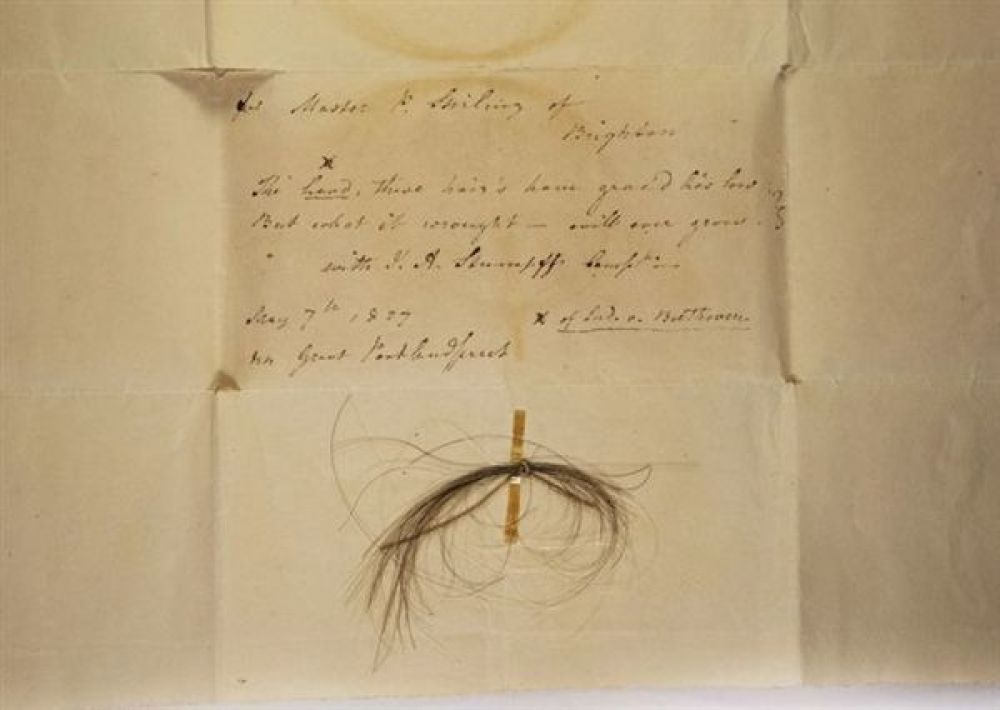 for Master P. of
Brighton
x
The head, these hair's have grac'd lies low
But what it wrought — will ever grow.
with J. A. Stumpff's
May 7th 1827
x of Lud. v. Beethoven.
44 Great Portlandstreet